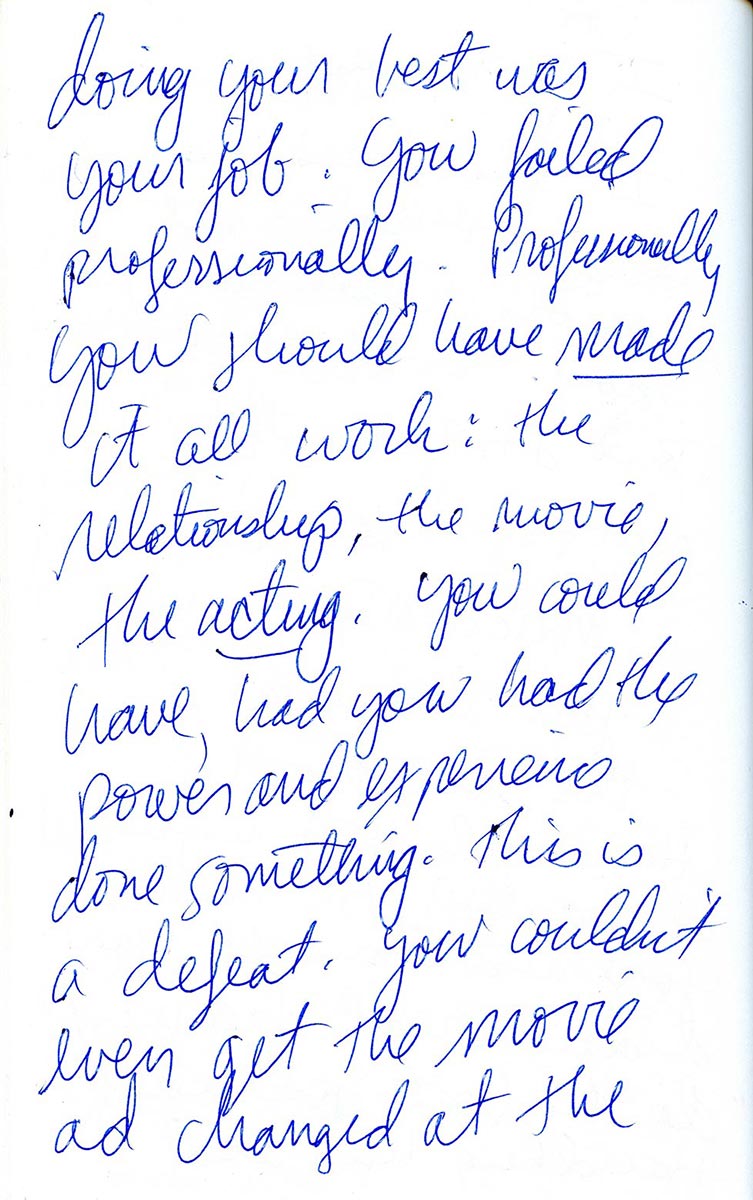 doing your best was
your job. You failed
professionally. Professionally,
you should have made
it all work: the
relationship, the movie,
the acting. You could
have, had you had the
power and experience
done something. This is
a defeat. You couldn't
even get the movie
ad changed at the